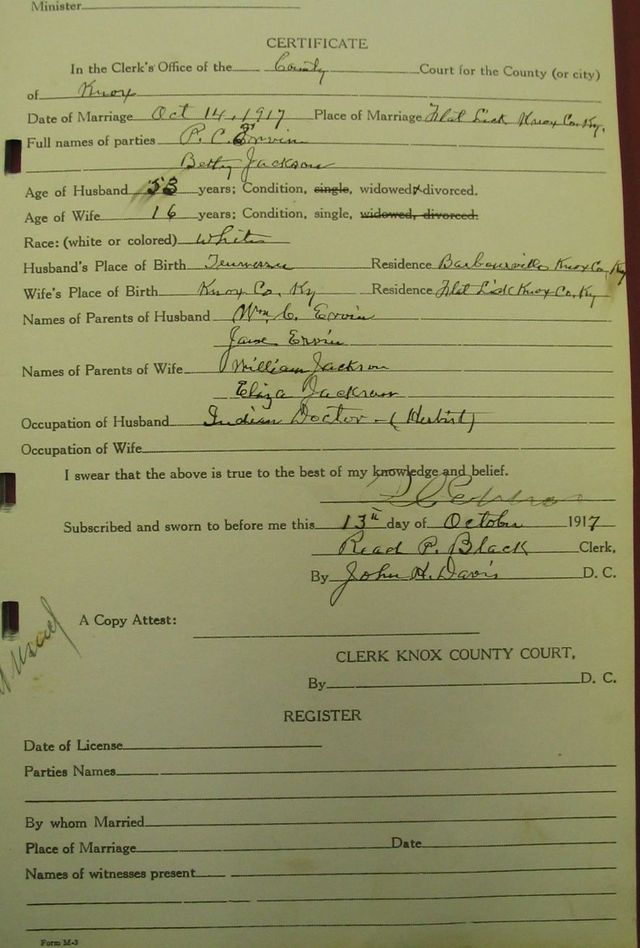 Minister
CERTIFICATE
In the Clerk's Office of the County Court for the County (or city)
of Knox
Date of Marriage Oct 14, 1917 Place of Marriage Flat Lick Knox Co. Ky.
Full names of parties P. C. Ervin
Betty Jackson
Age of Husband 53 years; Condition, single, widowed, divorced.
Age of Wife 16 years; Condition, single, widowed, divorced.
Race: (white or colored) White
Husband's Place of Birth Tennessee Residence Barbourville Knox Co. Ky
Wife's Place of Birth Knox Co. Ky Residence Flat Lick Knox Co. Ky
Names of Parents of Husband Wm. C. Ervin
Jane Ervin
Names of Parents of Wife William Jackson
Eliza Jackson
Occupation of Husband Indian Doctor - (Herbist)
Occupation of Wife
I swear that the above is true to the best of my knowledge and belief.
Subscribed and sworn to before me this 13th day of October 1917
Read P. Black Clerk,
By John H. Davis D. C.
A Copy Attest:
CLERK KNOX COUNTY COURT,
By D. C.
REGISTER
Date of License
Parties Names
By whom Married
Place of Marriage Date
Names of witnesses present
Form M-3